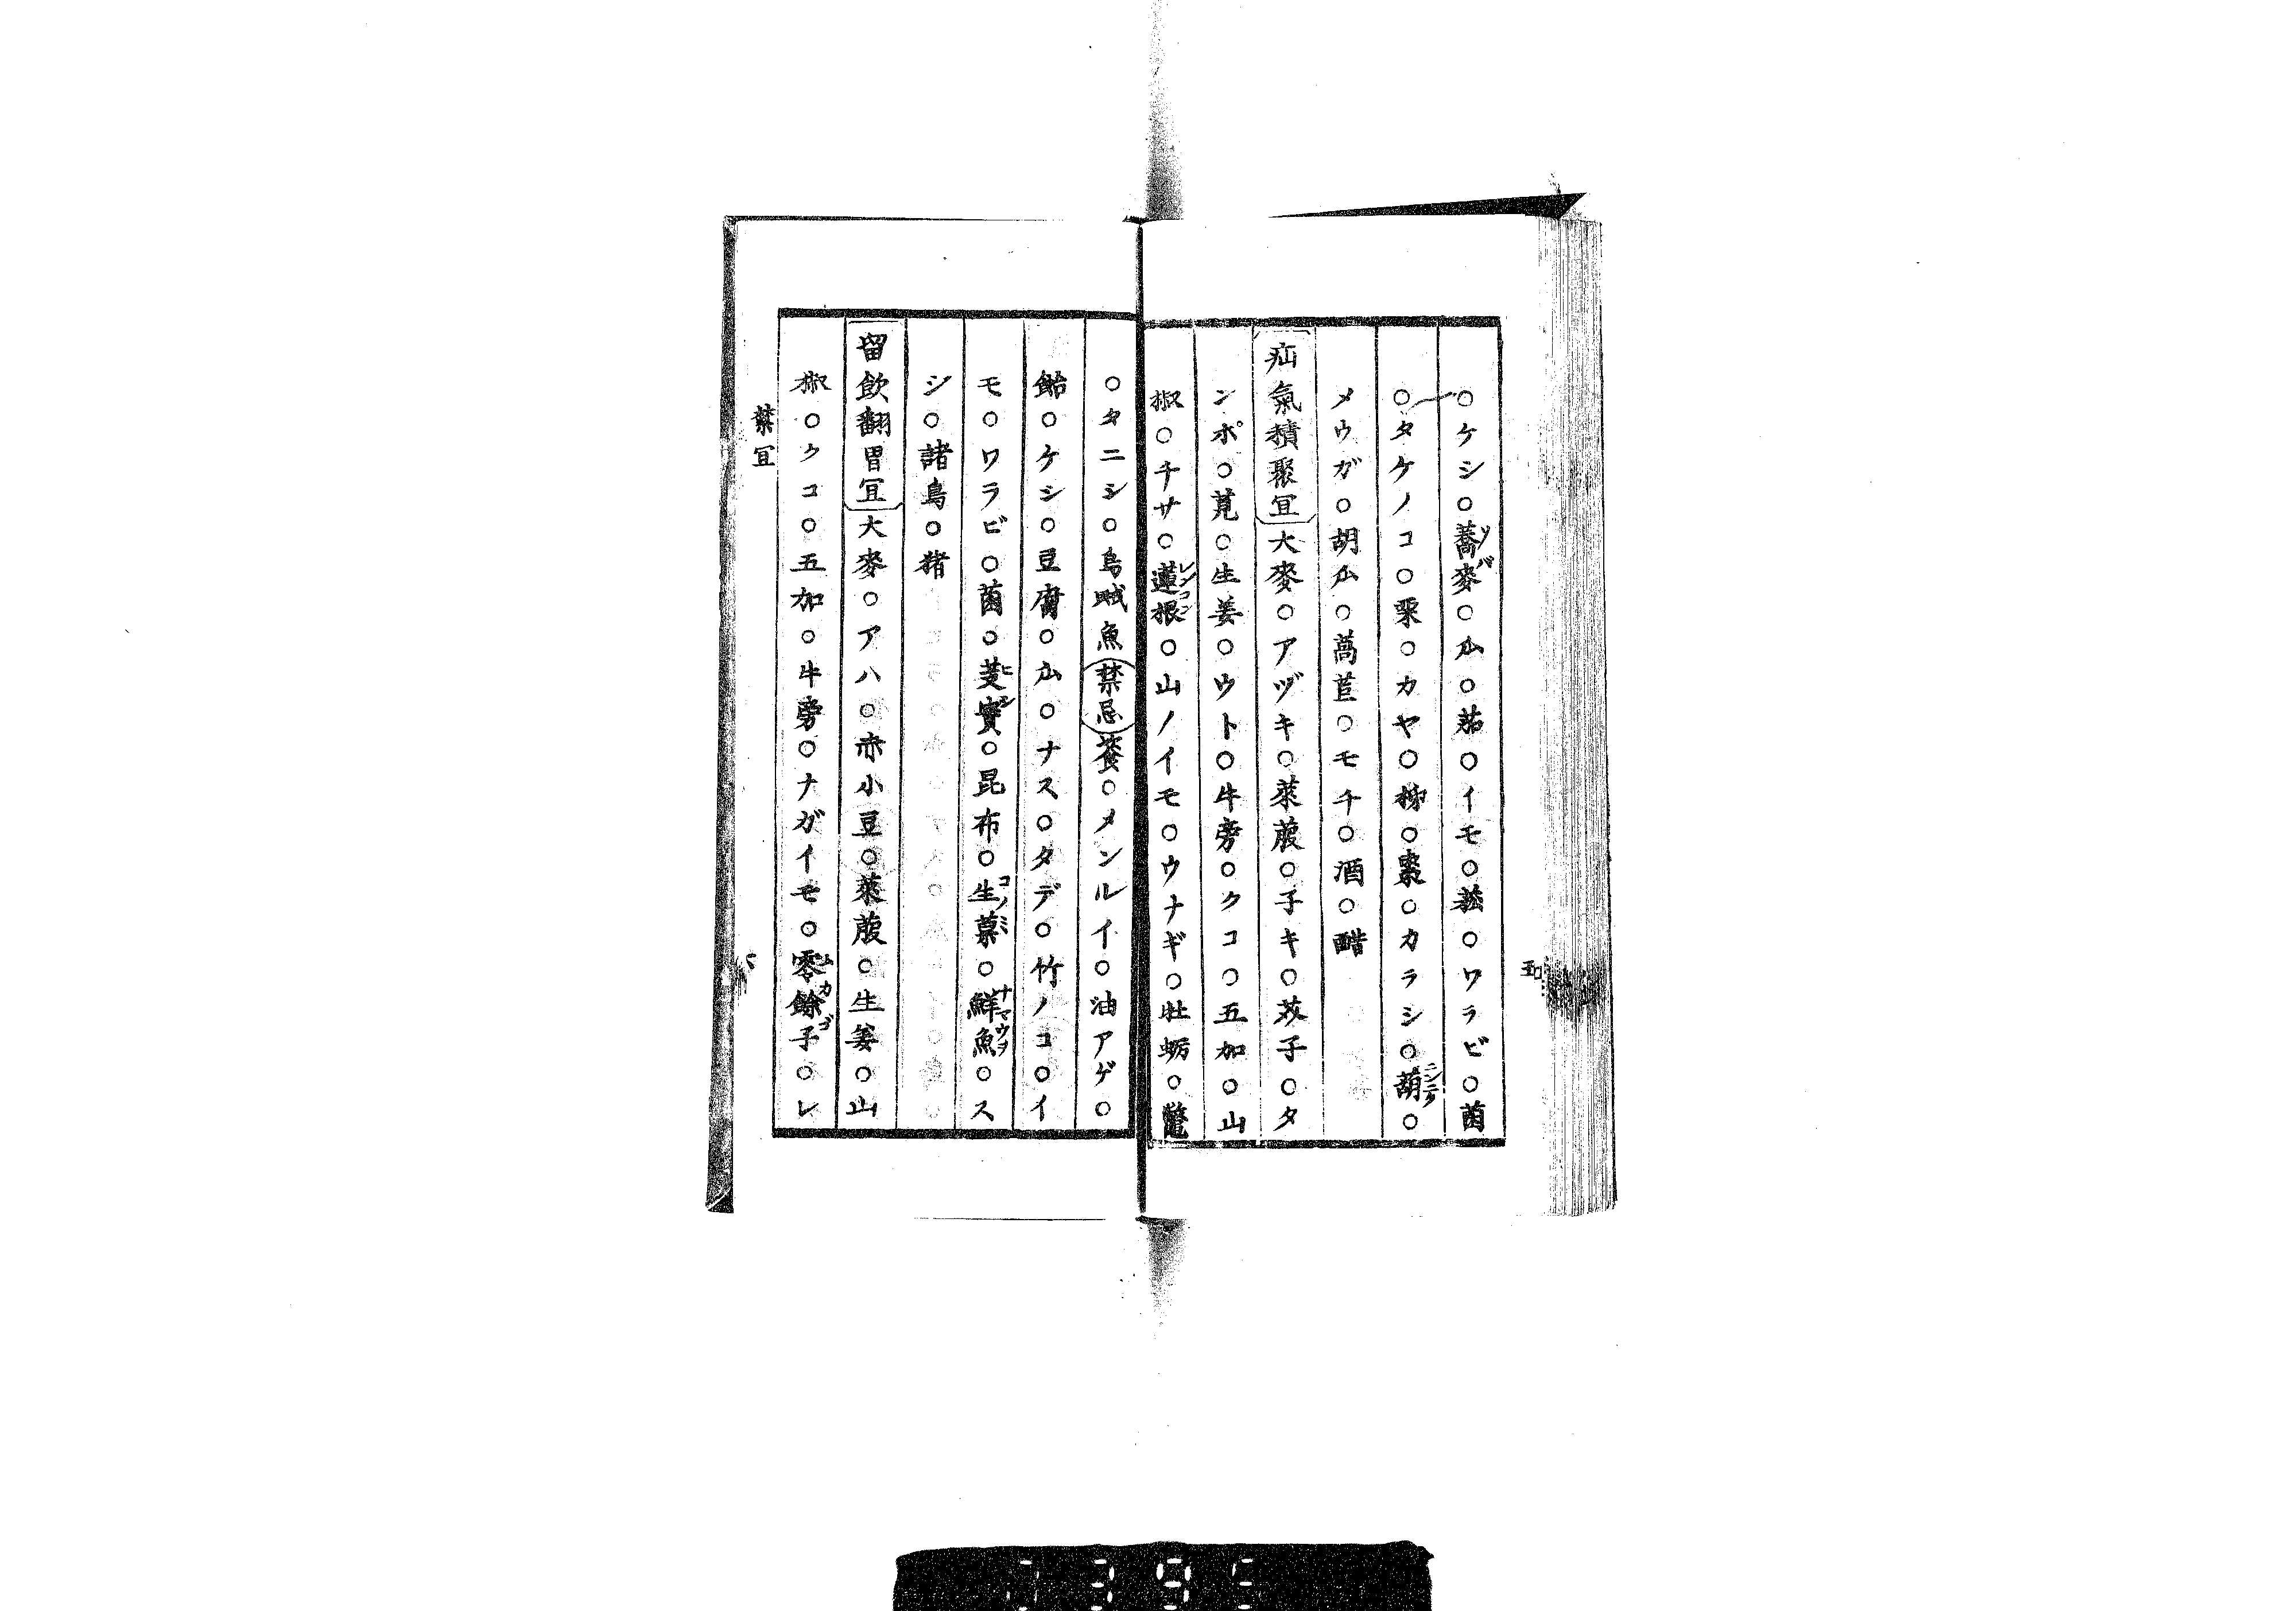 ○ケシ○蕎麥○瓜○茄○イモ○菘○ワラビ○菌
○タケノコ○栗○カヤ○柿○棗○カラシ○葫○
メウガ○胡瓜○萵苣○モチ○酒○醋
疝氣積聚冝大麥○アヅキ○萊菔○子キ○茨子○タ
ンポ○莧○生姜○ウト○牛旁○クコ○五加○山
椒○チサ○蓮根○山ノイモ○ウナギ○牡蛎○鼈
○タニシ○烏賊魚禁忌餈○メンルイ○油アゲ○
飴○ケシ○豆腐○瓜○ナス○タデ○竹ノコ○イ
モ○ワラビ○菌○菱實○昆布○生菓○鮮魚○ス
シ○諸鳥○猪
留飲翻胃冝大麥○アハ○赤小豆○萊菔○生姜○山
椒○クコ○五加○牛旁○ナガイモ○零餘子○レ
禁冝